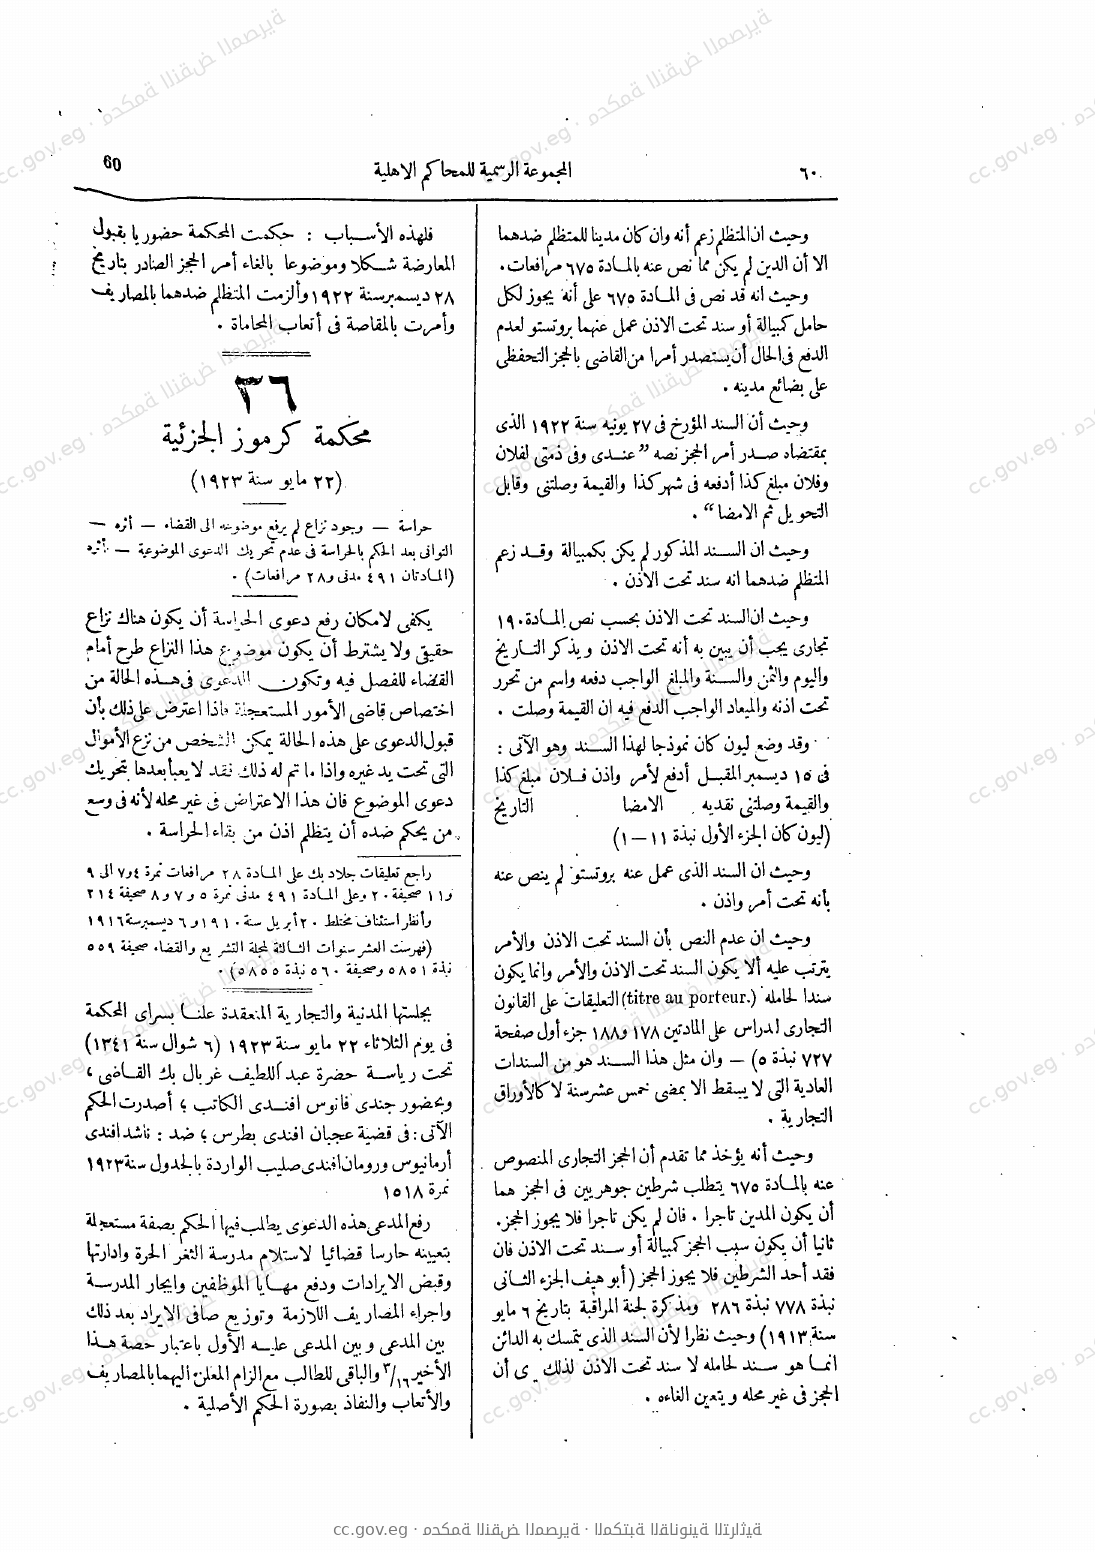 ٦٠
المجموعة الرسمية للمحاكم الاهلية
60
وحيث ان المتظلم زعم أنه وان كان مدينا للمتظلم ضدهما
الا أن الدين لم يكن مما نص عنه بالمادة ٦٧٥ مرافعات.
وحيث انه قد نص فى المادة ٦٧٥ على أنه يجوز لكل
حامل كمبيالة أو سند تحت الاذن عمل عنهما بروتستو لعدم
الدفع فى الحال أن يستصدر أمرا من القاضى بالحجز التحفظى
على بضائع مدينه .
وحيث أن السند المؤرخ فى ٢٧ يونيه سنة ١٩٢٢ الذى
بمقتضاه صدر أمر الحجز نصه ” عندى وفى ذمتى لفلان
وفلان مبلغ كذا أدفعه فى شهر كذا والقيمة وصلتنى وقابل
التحويل ثم الامضا “ .
وحيث ان السند المذكور لم يكن بكمبيالة وقد زعم
المتظلم ضدهما انه سند تحت الاذن .
وحيث ان السند تحت الاذن بحسب نص المادة ١٩٠
تجارى يجب أن يبين به أنه تحت الاذن ويذكر التاريخ
واليوم والثمن والسنة والمبلغ الواجب دفعه واسم من تحرر
تحت اذنه والميعاد الواجب الدفع فيه ان القيمة وصلت .
وقد وضع ليون كان نموذجا لهذا السند وهو الآتى :
فى ١٥ ديسمبر المقبل أدفع لأمر واذن فلان مبلغ كذا
والقيمة وصلتنى نقديه . الامضا . التاريخ
(ليون كان الجزء الأول نبذة ١١ — ١)
وحيث ان السند الذى عمل عنه بروتستو لم ينص عنه
بأنه تحت أمر واذن .
وحيث ان عدم النص بأن السند تحت الاذن والأمر
يترتب عليه ألا يكون السند تحت الاذن والأمر وانما يكون
سندا لحامله (titre au porteur.) التعليقات على القانون
التجارى لدراس على المادتين ١٧٨ و١٨٨ جزء أول صفحة
٧٢٧ نبذة ٥) — وان مثل هذا السند هو من السندات
العادية التى لا يسقط الا بمضى خمس عشر سنة لا كالأوراق
التجارية .
وحيث أنه يؤخذ مما تقدم أن الحجز التجارى المنصوص
عنه بالمادة ٦٧٥ يتطلب شرطين جوهريين فى الحجز هما
أن يكون المدين تاجرا . فان لم يكن تاجرا فلا يجوز الحجز.
ثانيا أن يكون سبب الحجز كمبيالة أو سند تحت الاذن فان
فقد أحد الشرطين فلا يجوز الحجز (أبو هيف الجزء الثانى
نبذة ٧٧٨ نبذة ٢٨٦ ومذكرة لجنة المراقبة بتاريخ ٦ مايو
سنة ١٩١٣) وحيث نظرا لأن السند الذى يتمسك به الدائن
انما هو سند لحامله لا سند تحت الاذن لذلك ى أن
الحجز فى غير محله ويتعين الغاءه .
فلهذه الأسباب : حكمت المحكمة حضوريا بقبول
المعارضة شكلا وموضوعا بالغاء أمر الحجز الصادر بتاريخ
٢٨ ديسمبر سنة ١٩٢٢ وألزمت المتظلم ضدهما بالمصاريف
وأمرت بالمقاصة فى أتعاب المحاماة .
٣٦
محكمة كرموز الجزئية
(٢٢ مايو سنة ١٩٢٣)
حراسة — وجود نزاع لم يرفع موضوعه الى القضاء — أثره —
التوانى بعد الحكم بالحراسة فى عدم تحريك الدعوى الموضوعية — أثره
(المادتان ٤٩١ مدنى و٢٨ مرافعات) .
يكفى لامكان رفع دعوى الحراسة أن يكون هناك نزاع
حقيقى ولا يشترط أن يكون موضوع هذا النزاع طرح أمام
القضاء للفصل فيه وتكون الدعوى فى هذه الحالة من
اختصاص قاضى الأمور المستعجلة فاذا اعترض على ذلك بأن
قبول الدعوى على هذه الحالة يمكن الشخص من نزع الأموال
التى تحت يد غيره واذا ما تم له ذلك نقد لا يعبأ بعدها بتحريك
دعوى الموضوع فان هذا الاعتراض فى غير محله لأنه فى وسع
من يحكم ضده أن يتظلم اذن من بقاء الحراسة .
راجع تعليقات جلاد بك على المادة ٢٨ مرافعات نمرة ٤ و٧ الى ٩
و١١ صحيفة ٢٠ وعلى المادة ٤٩١ مدنى نمرة ٥ و٧ و٨ صحيفة ٢١٤
وأنظر استئناف مختلط ٢٠ أبريل سنة ١٩١٠ و٦ ديسمبر سنة ١٩١٦
(فهرست العشر سنوات الثالثة لمجلة التشريع والقضاء صحيفة ٥٥٩
نبذة ٥٨٥١ وصحيفة ٥٦٠ نبذة ٥٨٥٥) .
بجلستها المدنية والتجارية المنعقدة علنا بسراى المحكمة
فى يوم الثلاثاء ٢٢ مايو سنة ١٩٢٣ (٦ شوال سنة ١٣٤١)
تحت رياسة حضرة عبد اللطيف غربال بك القاضى ،
وبحضور جندى فانوس افندى الكاتب ؛ أصدرت الحكم
الآتى : فى قضية عجبان افندى بطرس ؛ ضد : ناشد افندى
أرمانيوس ورومان افندى صليب الواردة بالجدول سنة ١٩٢٣
نمرة ١٥١٨
رفع المدعى هذه الدعوى يطلب فيها الحكم بصفة مستعجلة
بتعيينه حارسا قضائيا لاستلام مدرسة الثغر الحرة وادارتها
وقبض الايرادات ودفع مهايا الموظفين وايجار المدرسة
واجراء المصاريف اللازمة وتوزيع صافى الايراد بعد ذلك
بين المدعى وبين المدعى عليه الأول باعتبار حصة هذا
الأخير ٣/١٦ والباقى للطالب مع الزام المعلن اليهما بالمصاريف
والأتعاب والنفاذ بصورة الحكم الأصلية .
cc.gov.eg · محكمة النقض المصرية · المكتبة القانونية التراثية